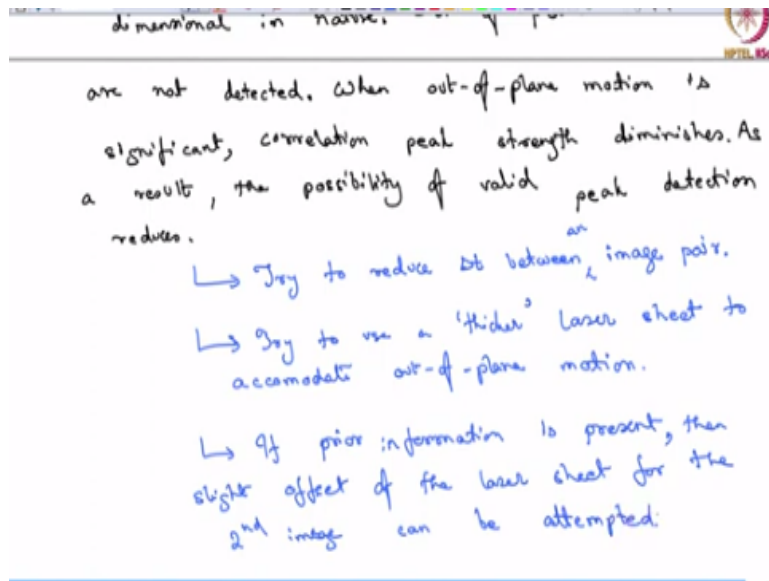 dimensional in nature. of
are not detected. When out-of-plane motion is
significant, correlation peak strength diminishes. As
a result, the possibility of valid peak detection
reduces.
↳ Try to reduce Δt between an image pair.
↳ Try to use a 'thicker' laser sheet to
accomodate out-of-plane motion.
↳ If prior information is present, then
slight offset of the laser sheet for the
2nd image can be attempted.